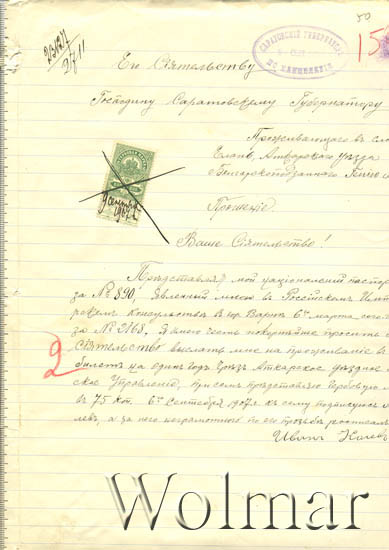 50
27/11
САРАТОВСКІЙ ГУБЕРНАТОР
ПО КАНЦЕЛЯРІИ
15
Его Сіятельству
Господину Саратовскому Губернатору
Проживающаго въ сло
Елань, Аткарскаго уѣзда
Болгарскоподданнаго
Прошеніе.
Ваше Сіятельство!
Представляя мой національній паспор
за № 890, явленній мною въ Россійскомъ Импе
рскомъ Консульствѣ въ гор. Варнѣ 6го марта, сего
за № 2168, я имѣю честь покорнѣйше просить
Сіятельство выслать мнѣ на проживаніе в
2
билетъ на одинъ годъ чрезъ Аткарское уѣздное
ское Управленіе, при семъ представляю гербовую
въ 75 коп. 6го Сентября 1907 г. къ сему подпишусь
левъ, а за него неграмотнаго по его прозьбѣ росписал
Иванъ Колевъ
1907
Wolmar